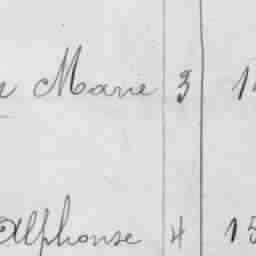 Marie 3
Alphonse 4 15